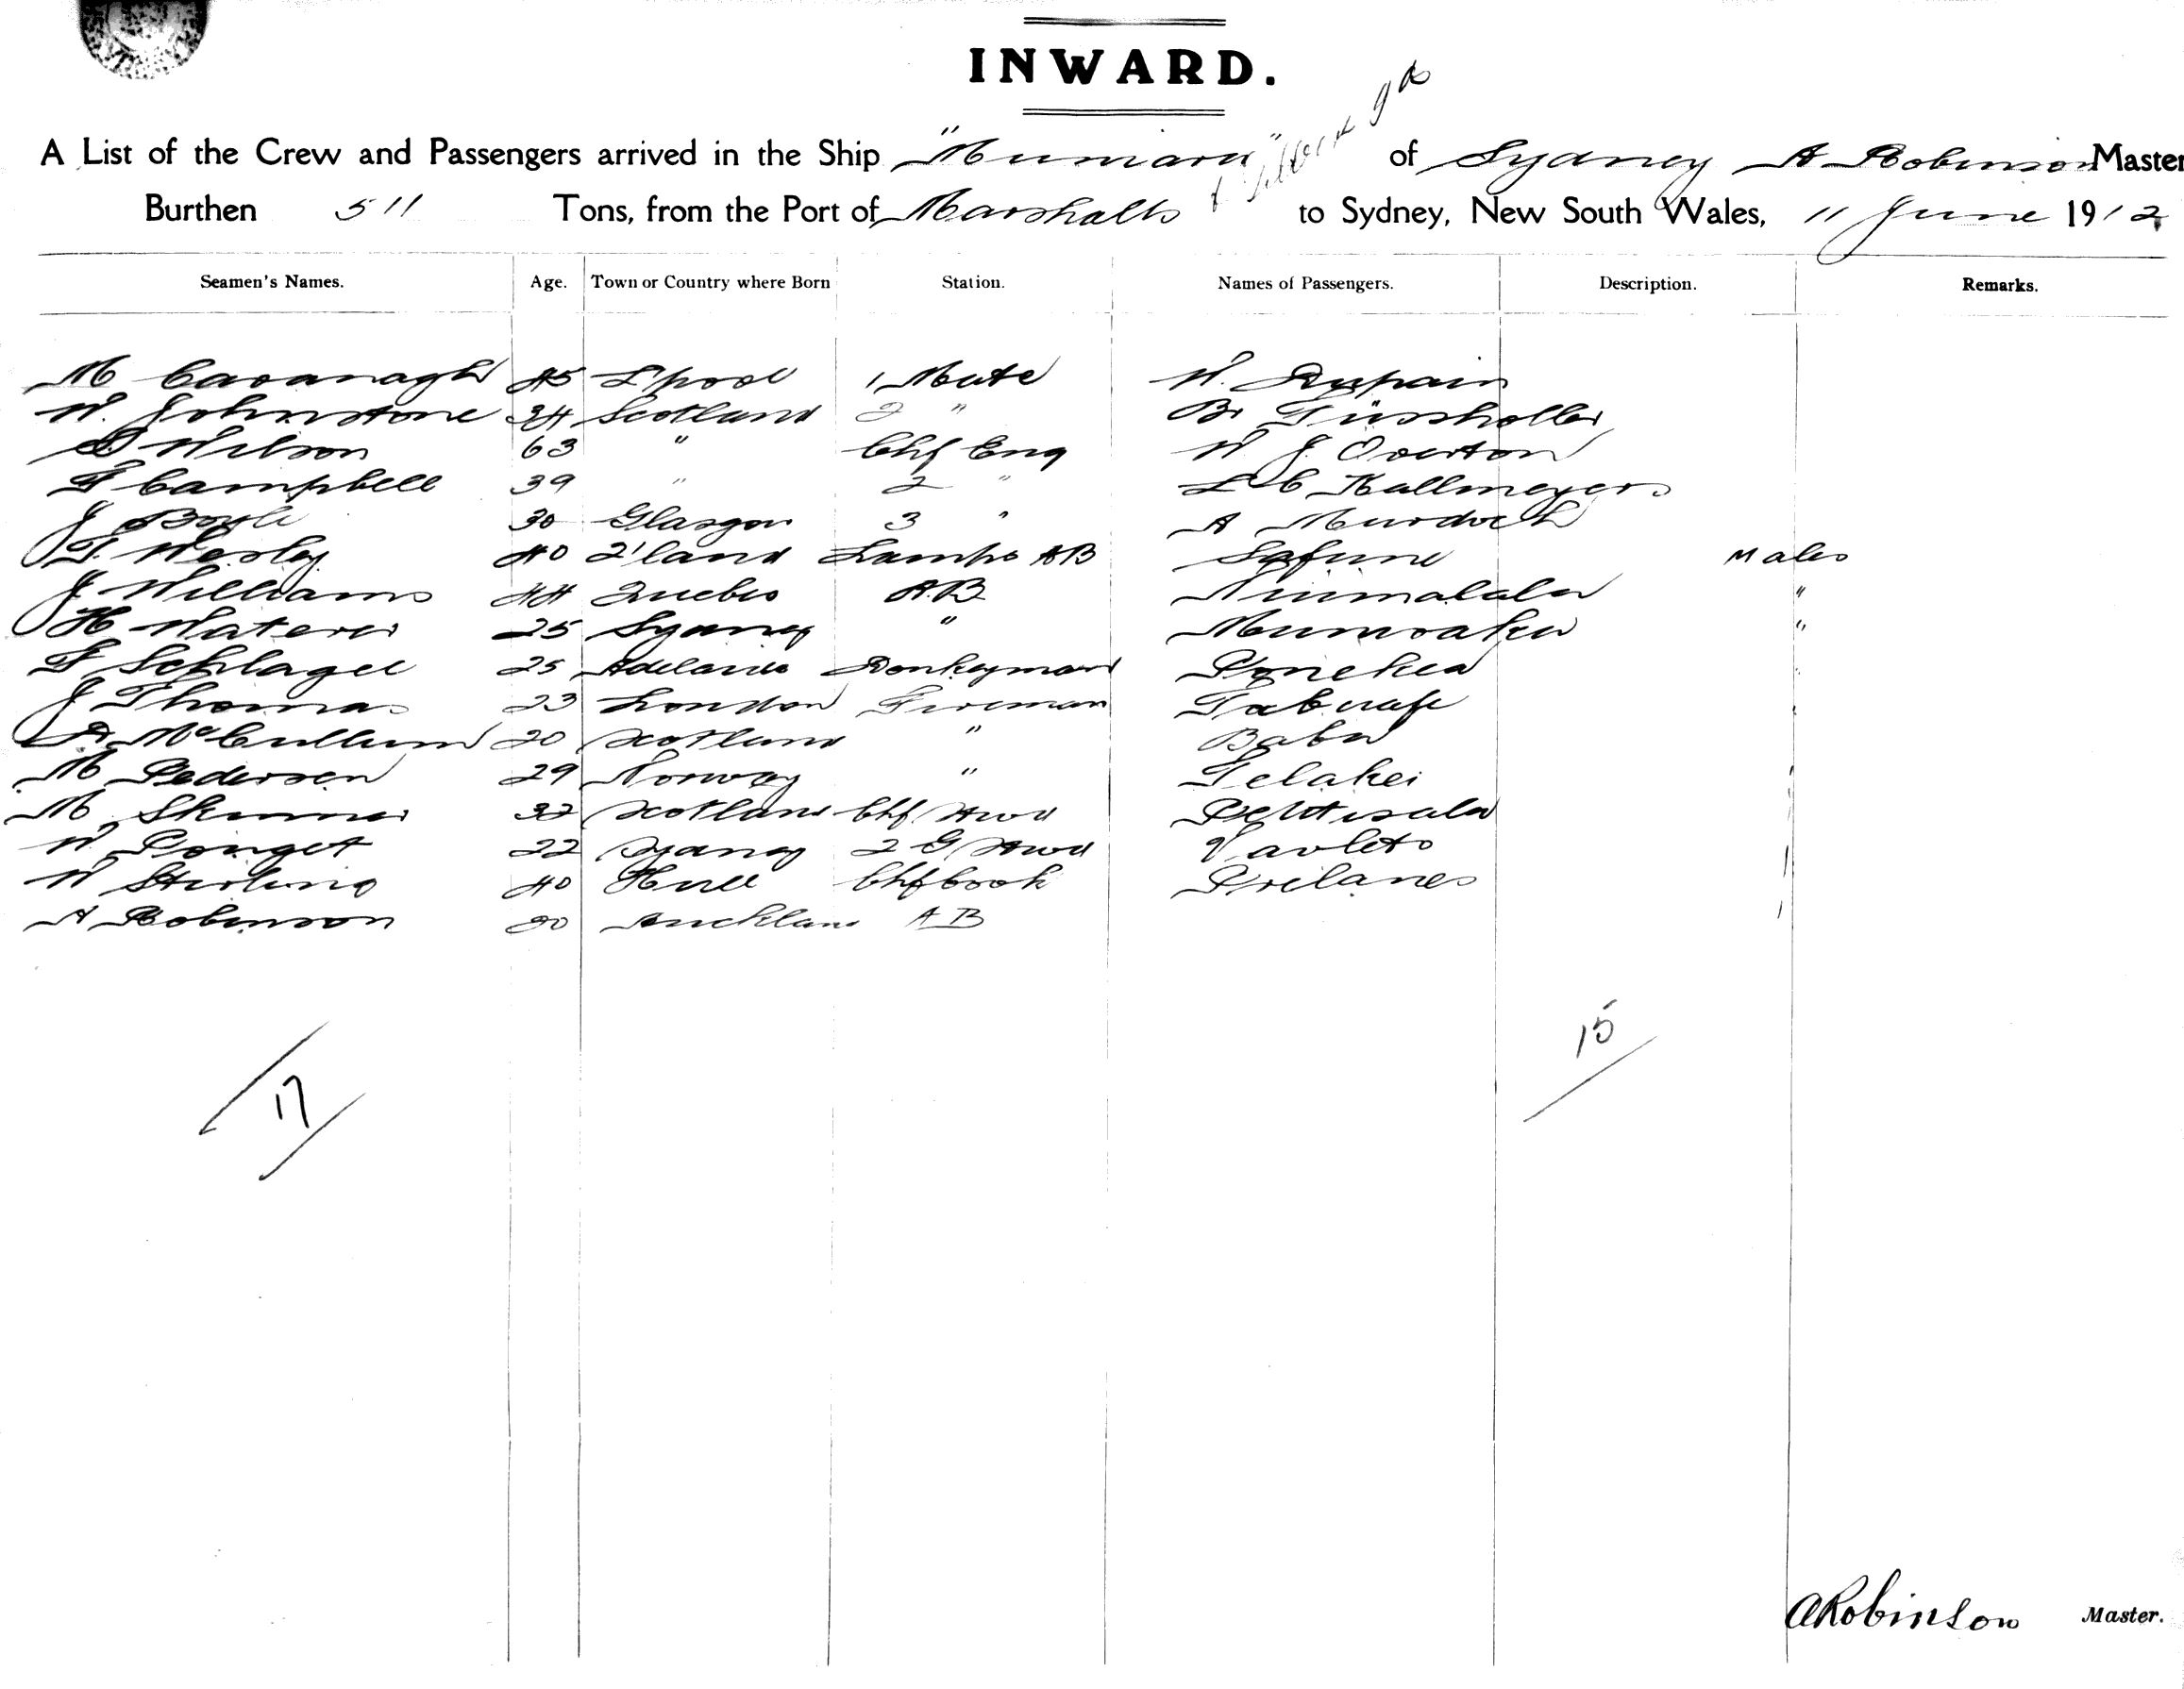 INWARD.
A List of the Crew and Passengers arrived in the Ship "Muniara" & of Sydney A Robinson Master
Burthen 511 Tons, from the Port of Marshalls to Sydney, New South Wales, 11 June 1912
Seamen's Names. Age. Town or Country where Born Station. Names of Passengers. Description. Remarks.
M Cavanagh 45 L'pool 1 Mate W.
W. Johnstone 34 Scotland 2 "
D Wilson 63 " Chf Eng W J Overton
F Campbell 39 " 2 " L C Kallmeyer
J Boyle 30 Glasgow 3 " A Murdoch
T. Wesley 40 Lamps AB Safune Males
J Williams 44 Quebec A.B. "
H Waterer 25 Sydney " "
F Schlagel 25 Adelaide Donkeyman
J Thomas 23 London Fireman
A McCullum 20 Scotland " Baba
M Pedersen 29 Norway " Telakei
M Skinner 32 Scotland Chf Stwd
W Ponget 22 Sydney 2 Stwd
W Stirling 40 Hull Chf Cook
A Robinson 20 Auckland AB
17
15
A Robinson Master.